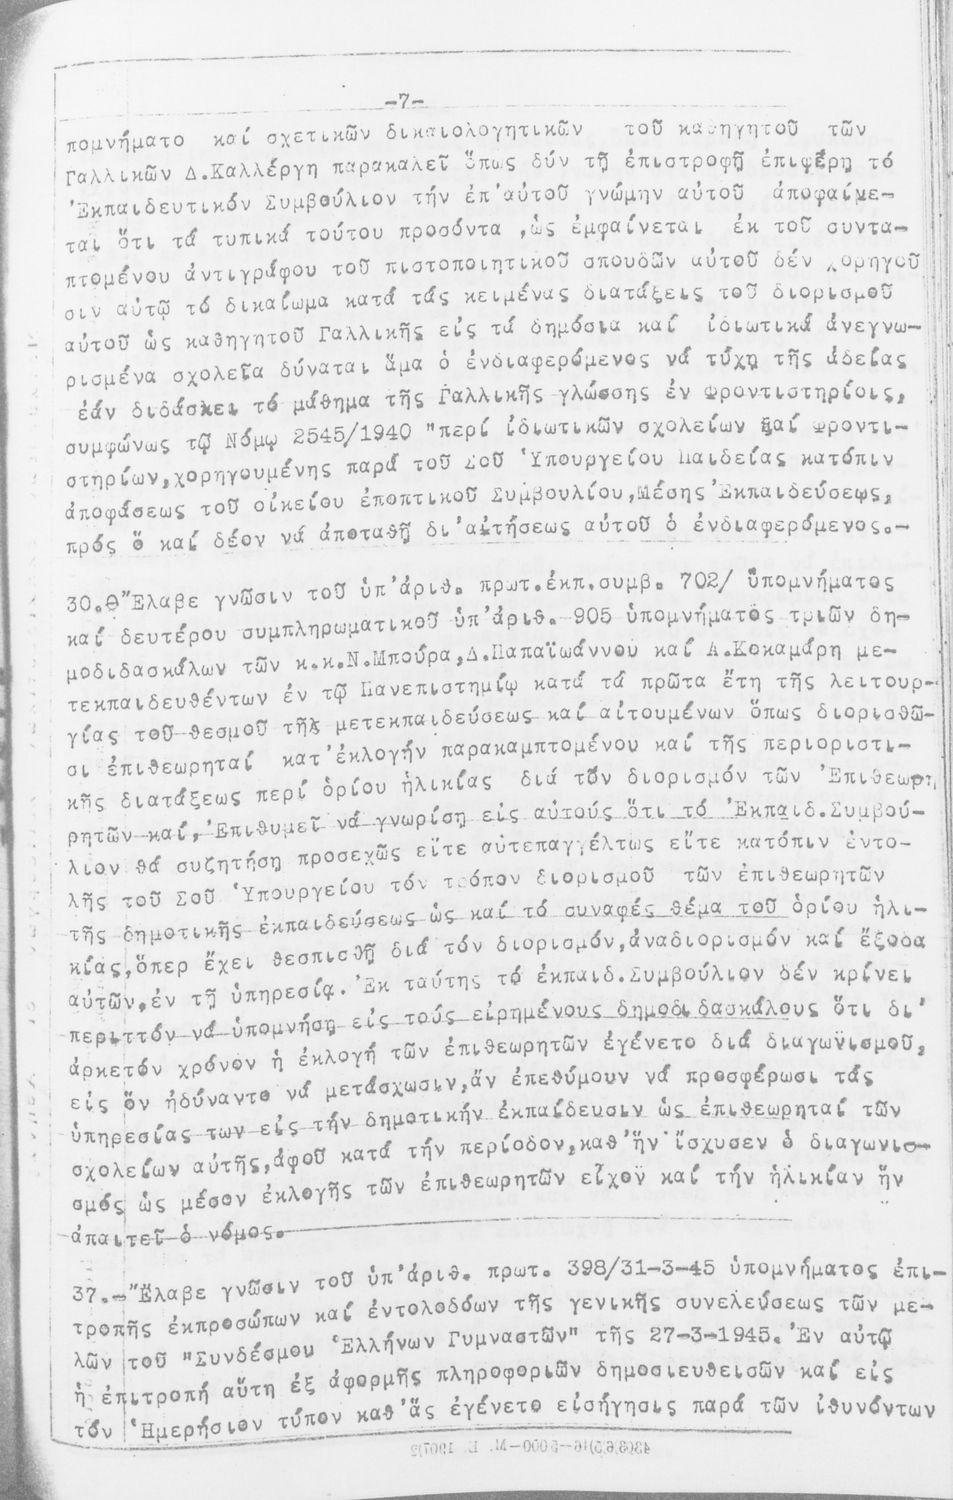 -7-
πομνήματο καί σχετικῶν δικαιολογητικῶν τοῦ καθηγητοῦ τῶν
Γαλλικῶν Δ.Καλλέργη παρακαλεῖ ὅπως δύν τῇ ἐπιστροφῇ ἐπιφέρῃ τό
Ἐκπαιδευτικόν Συμβούλιον τήν ἐπ'αὐτοῦ γνώμην αὐτοῦ ἀποφαίνε-
ται ὅτι τά τυπικά τούτου προσόντα ,ὡς ἐμφαίνεται ἐκ τοῦ συντα-
πτομένου ἀντιγράφου τοῦ πιστοποιητικοῦ σπουδῶν αὐτοῦ δέν χορηγοῦ
σιν αὐτῷ τό δικαίωμα κατά τάς κειμένας διατάξεις τοῦ διορισμοῦ
αὐτοῦ ὡς καθηγητοῦ Γαλλικῆς εἰς τά δημόσια καί ἰδιωτικά ἀνεγνω-
ρισμένα σχολεῖα δύναται ἅμα ὁ ἐνδιαφερόμενος νά τύχῃ τῆς ἀδείας
ἐάν διδάσκει τό μάθημα τῆς Γαλλικῆς γλώσσης ἐν Φροντιστηρίοις,
συμφώνως τῷ Νόμῳ 2545/1940 "περί ἰδιωτικῶν σχολείων καί Φροντι-
στηρίων,χορηγουμένης παρά τοῦ Σοῦ Ὑπουργείου Παιδείας κατόπιν
ἀποφάσεως τοῦ οἰκείου ἐποπτικοῦ Συμβουλίου,Μέσης Ἐκπαιδεύσεως,
πρός ὅ καί δέον νά ἀποταθῇ δι'αἰτήσεως αὐτοῦ ὁ ἐνδιαφερόμενος.-
30.θ"Ἔλαβε γνῶσιν τοῦ ὑπ'ἀριθ. πρωτ.ἐκπ.συμβ. 702/ ὑπομνήματος
καί δευτέρου συμπληρωματικοῦ ὑπ'ἀριθ. 905 ὑπομνήματος τριῶν δη-
μοδιδασκάλων τῶν κ.κ.Ν.Μπούρα,Δ.Παπαϊωάννου καί Α.Κοκαμάρη με-
τεκπαιδευθέντων ἐν τῷ Πανεπιστημίῳ κατά τά πρῶτα ἔτη τῆς λειτουρ-
γίας τοῦ θεσμοῦ τῆς μετεκπαιδεύσεως καί αἰτουμένων ὅπως διορισθῶ-
σι ἐπιθεωρηταί κατ'ἐκλογήν παρακαμπτομένου καί τῆς περιοριστι-
κῆς διατάξεως περί ὁρίου ἡλικίας διά τόν διορισμόν τῶν Ἐπιθεωρη
ρητῶν καί, Ἐπιθυμεῖ νά γνωρίσῃ εἰς αὐτούς ὅτι τό Ἐκπαιδ.Συμβού-
λιον θά συζητήσῃ προσεχῶς εἴτε αὐτεπαγγέλτως εἴτε κατόπιν ἐντο-
λῆς τοῦ Σοῦ Ὑπουργείου τόν τρόπον διορισμοῦ τῶν ἐπιθεωρητῶν
τῆς δημοτικῆς ἐκπαιδεύσεως ὡς καί τό συναφές θέμα τοῦ ὁρίου ἡλι-
κίας,ὅπερ ἔχει θεσπισθῇ διά τόν διορισμόν,ἀναδιορισμόν καί ἔξοδα
αὐτῶν,ἐν τῇ ὑπηρεσίᾳ. Ἐκ ταύτης τό ἐκπαιδ.Συμβούλιον δέν κρίνει
περιττόν νά ὑπομνήσῃ εἰς τούς εἰρημένους δημοδιδασκάλους ὅτι δι'
ἀρκετόν χρόνον ἡ ἐκλογή τῶν ἐπιθεωρητῶν ἐγένετο διά διαγωνισμοῦ,
εἰς ὅν ἠδύναντο νά μετάσχωσιν,ἄν ἐπεθύμουν νά προσφέρωσι τάς
ὑπηρεσίας των εἰς τήν δημοτικήν ἐκπαίδευσιν ὡς ἐπιθεωρηταί τῶν
σχολείων αὐτῆς,ἀφοῦ κατά τήν περίοδον,καθ'ἥν ἴσχυσεν ὁ διαγωνισ-
σμός ὡς μέσον ἐκλογῆς τῶν ἐπιθεωρητῶν εἶχον καί τήν ἡλικίαν ἥν
ἀπαιτεῖ ὁ νόμος.
37.-"Ἔλαβε γνῶσιν τοῦ ὑπ'ἀριθ. πρωτ. 398/31-3-45 ὑπομνήματος ἐπι-
τροπῆς ἐκπροσώπων καί ἐντολοδόων τῆς γενικῆς συνελεύσεως τῶν με-
λῶν τοῦ "Συνδέσμου Ἑλλήνων Γυμναστῶν" τῆς 27-3-1945. Ἐν αὐτῷ
ἡ ἐπιτροπή αὕτη ἐξ ἀφορμῆς πληροφοριῶν δημοσιευθεισῶν καί εἰς
τόν Ἡμερήσιον τύπον καθ'ἅς ἐγένετο εἰσήγησις παρά τῶν ἰθυνόντων